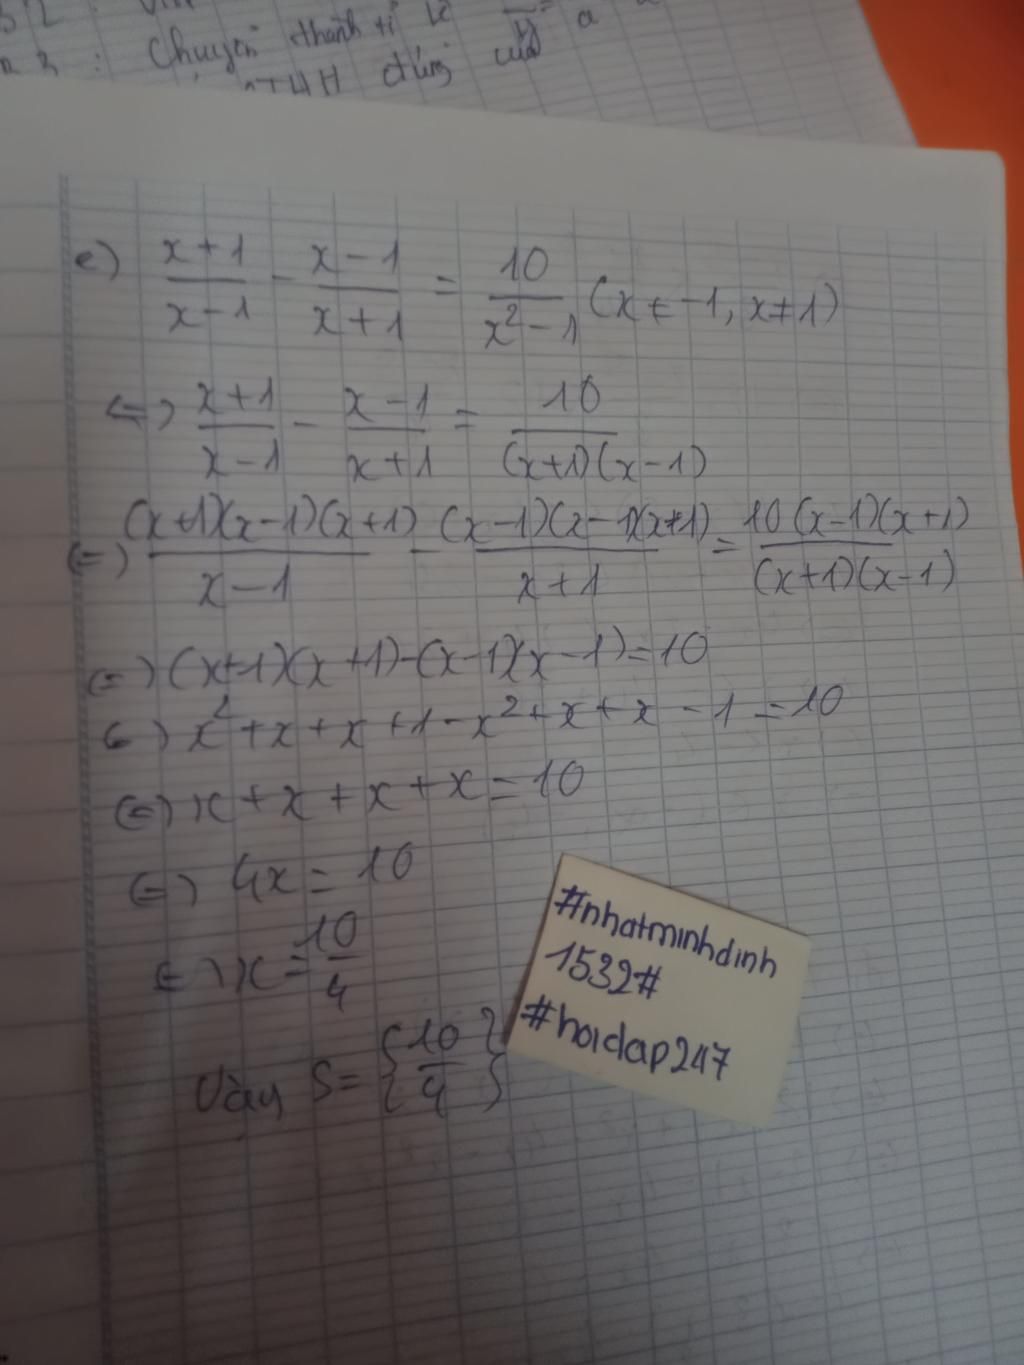 Chuyển thành tỉ lệ
đúng của
e) \frac{x+1}{x-1} - \frac{x-1}{x+1} = \frac{10}{x^2-1} (x ≠ -1, x ≠ 1)
<=> \frac{x+1}{x-1} - \frac{x-1}{x+1} = \frac{10}{(x+1)(x-1)}
<=> \frac{(x+1)(x-1)(x+1)}{x-1} - \frac{(x-1)(x-1)(x+1)}{x+1} = \frac{10(x-1)(x+1)}{(x+1)(x-1)}
<=> (x+1)(x+1)-(x-1)(x-1)=10
<=> x^2+x+x+1-x^2+x+x-1=10
<=> x+x+x+x=10
<=> 4x=10
<=> x=\frac{10}{4}
Vậy S={\frac{10}{4}}
#nhatminhdinh
1532#
#hoidap247